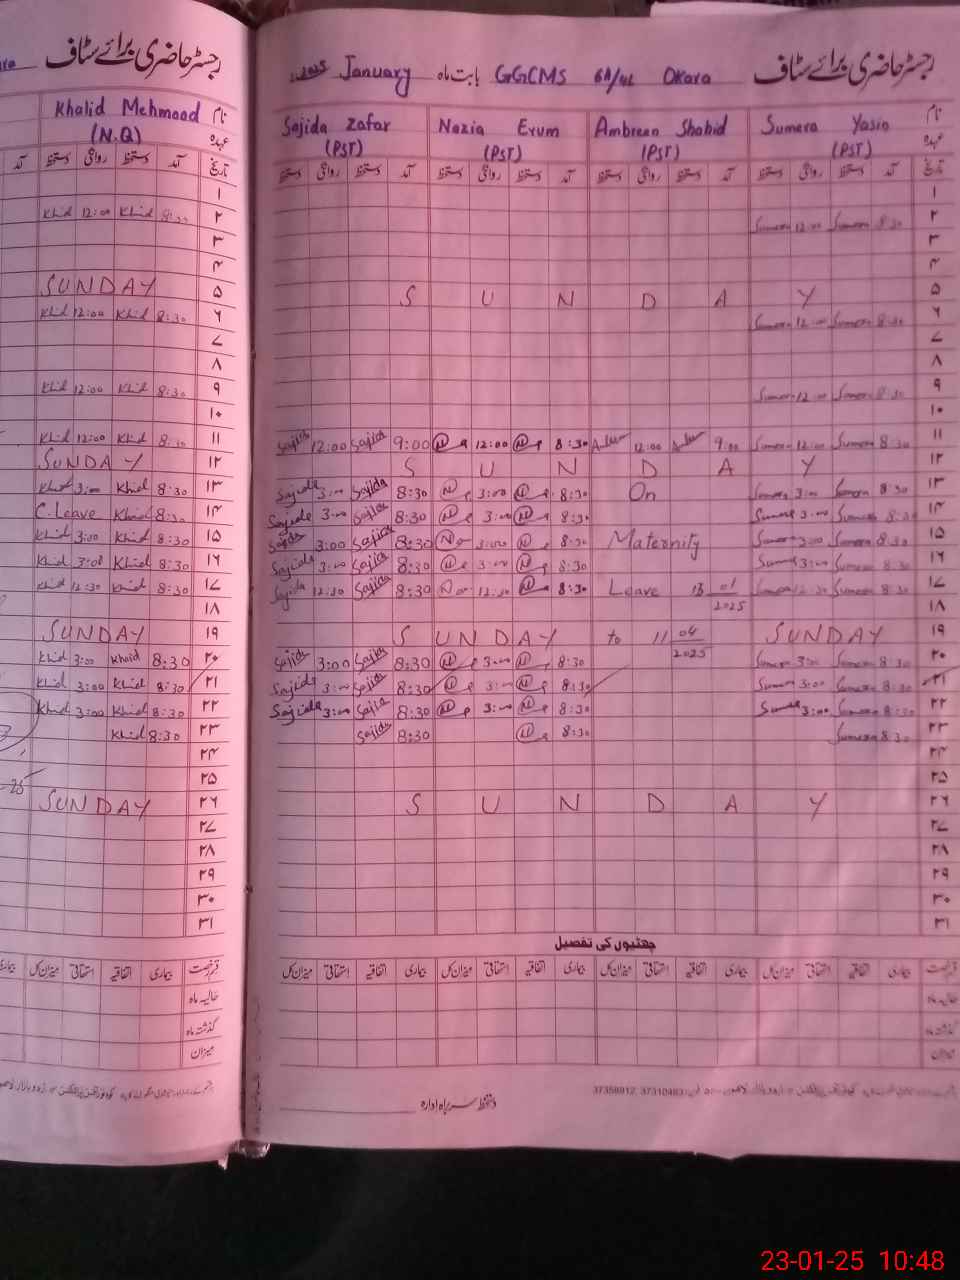 رجسٹر حاضری برائے سٹاف
Khalid Mehmood نام
(N.Q) عہدہ
آمد دستخط روانگی دستخط آمد تاریخ
۱
Khid 12:00 Khid 8:30 ۲
۳
۴
SUNDAY ۵
Khid 12:00 Khid 8:30 ۶
۷
۸
Khid 12:00 Khid 8:30 ۹
۱۰
Khid 12:00 Khid 8:30 ۱۱
SUNDAY ۱۲
Khid 3:00 Khid 8:30 ۱۳
C.Leave Khid 8:30 ۱۴
Khid 3:00 Khid 8:30 ۱۵
Khid 3:00 Khid 8:30 ۱۶
Khid 12:30 Khid 8:30 ۱۷
۱۸
SUNDAY ۱۹
Khid 3:00 Khaid 8:30 ۲۰
Khid 3:00 Khid 8:30 ۲۱
Khid 3:00 Khid 8:30 ۲۲
Khid 8:30 ۲۳
۲۴
۲۵
SUNDAY ۲۶
۲۷
۲۸
۲۹
۳۰
۳۱
بیماری میزان کل استحقاقی اتفاقیہ بیماری قسم رخصت
حالیہ ماہ
گذشتہ ماہ
میزان
2025 January بابت ماہ GGCMS 6A/4L Okara رجسٹر حاضری برائے سٹاف
Sajida Zafar Nazia Erum Ambreen Shahid Sumera Yasin نام
(PST) (PST) (PST) (PST) عہدہ
دستخط روانگی دستخط آمد دستخط روانگی دستخط آمد دستخط روانگی دستخط آمد دستخط روانگی دستخط آمد تاریخ
۱
Sumera 12:00 Sumera 8:30 ۲
۳
۴
S U N D A Y ۵
Sumera 12:00 Sumera 8:30 ۶
۷
۸
Sumera 12:00 Sumera 8:30 ۹
۱۰
Sajida 12:00 Sajida 9:00 12:00 8:30 12:00 9:00 Sumera 12:00 Sumera 8:30 ۱۱
S U N D A Y ۱۲
Sajida 3:00 Sajida 8:30 3:00 8:30 On Sumera 3:00 Sumera 8:30 ۱۳
Sajida 3:00 Sajida 8:30 3:00 8:30 Sumera 3:00 Sumera 8:30 ۱۴
Sajida 3:00 Sajida 8:30 3:00 8:30 Maternity Sumera 3:00 Sumera 8:30 ۱۵
Sajida 3:00 Sajida 8:30 3:00 8:30 Sumera 3:00 Sumera 8:30 ۱۶
Sajida 12:30 Sajida 8:30 12:30 8:30 Leave 13 01/2025 Sumera 12:30 Sumera 8:30 ۱۷
۱۸
S UNDAY to 11 04/2025 SUNDAY ۱۹
Sajida 3:00 Sajida 8:30 3:00 8:30 Sumera 3:00 Sumera 8:30 ۲۰
Sajida 3:00 Sajida 8:30 3:00 8:30 Sumera 3:00 Sumera 8:30 ۲۱
Sajida 3:00 Sajida 8:30 3:00 8:30 Sumera 3:00 Sumera 8:30 ۲۲
Sajida 8:30 8:30 Sumera 8:30 ۲۳
۲۴
۲۵
S U N D A Y ۲۶
۲۷
۲۸
۲۹
۳۰
۳۱
چھٹیوں کی تفصیل
میزان کل استحقاقی اتفاقیہ بیماری میزان کل استحقاقی اتفاقیہ بیماری میزان کل استحقاقی اتفاقیہ بیماری میزان کل استحقاقی اتفاقیہ بیماری قسم رخصت
حالیہ ماہ
گذشتہ ماہ
میزان
دستخط سربراہ ادارہ
23-01-25 10:48